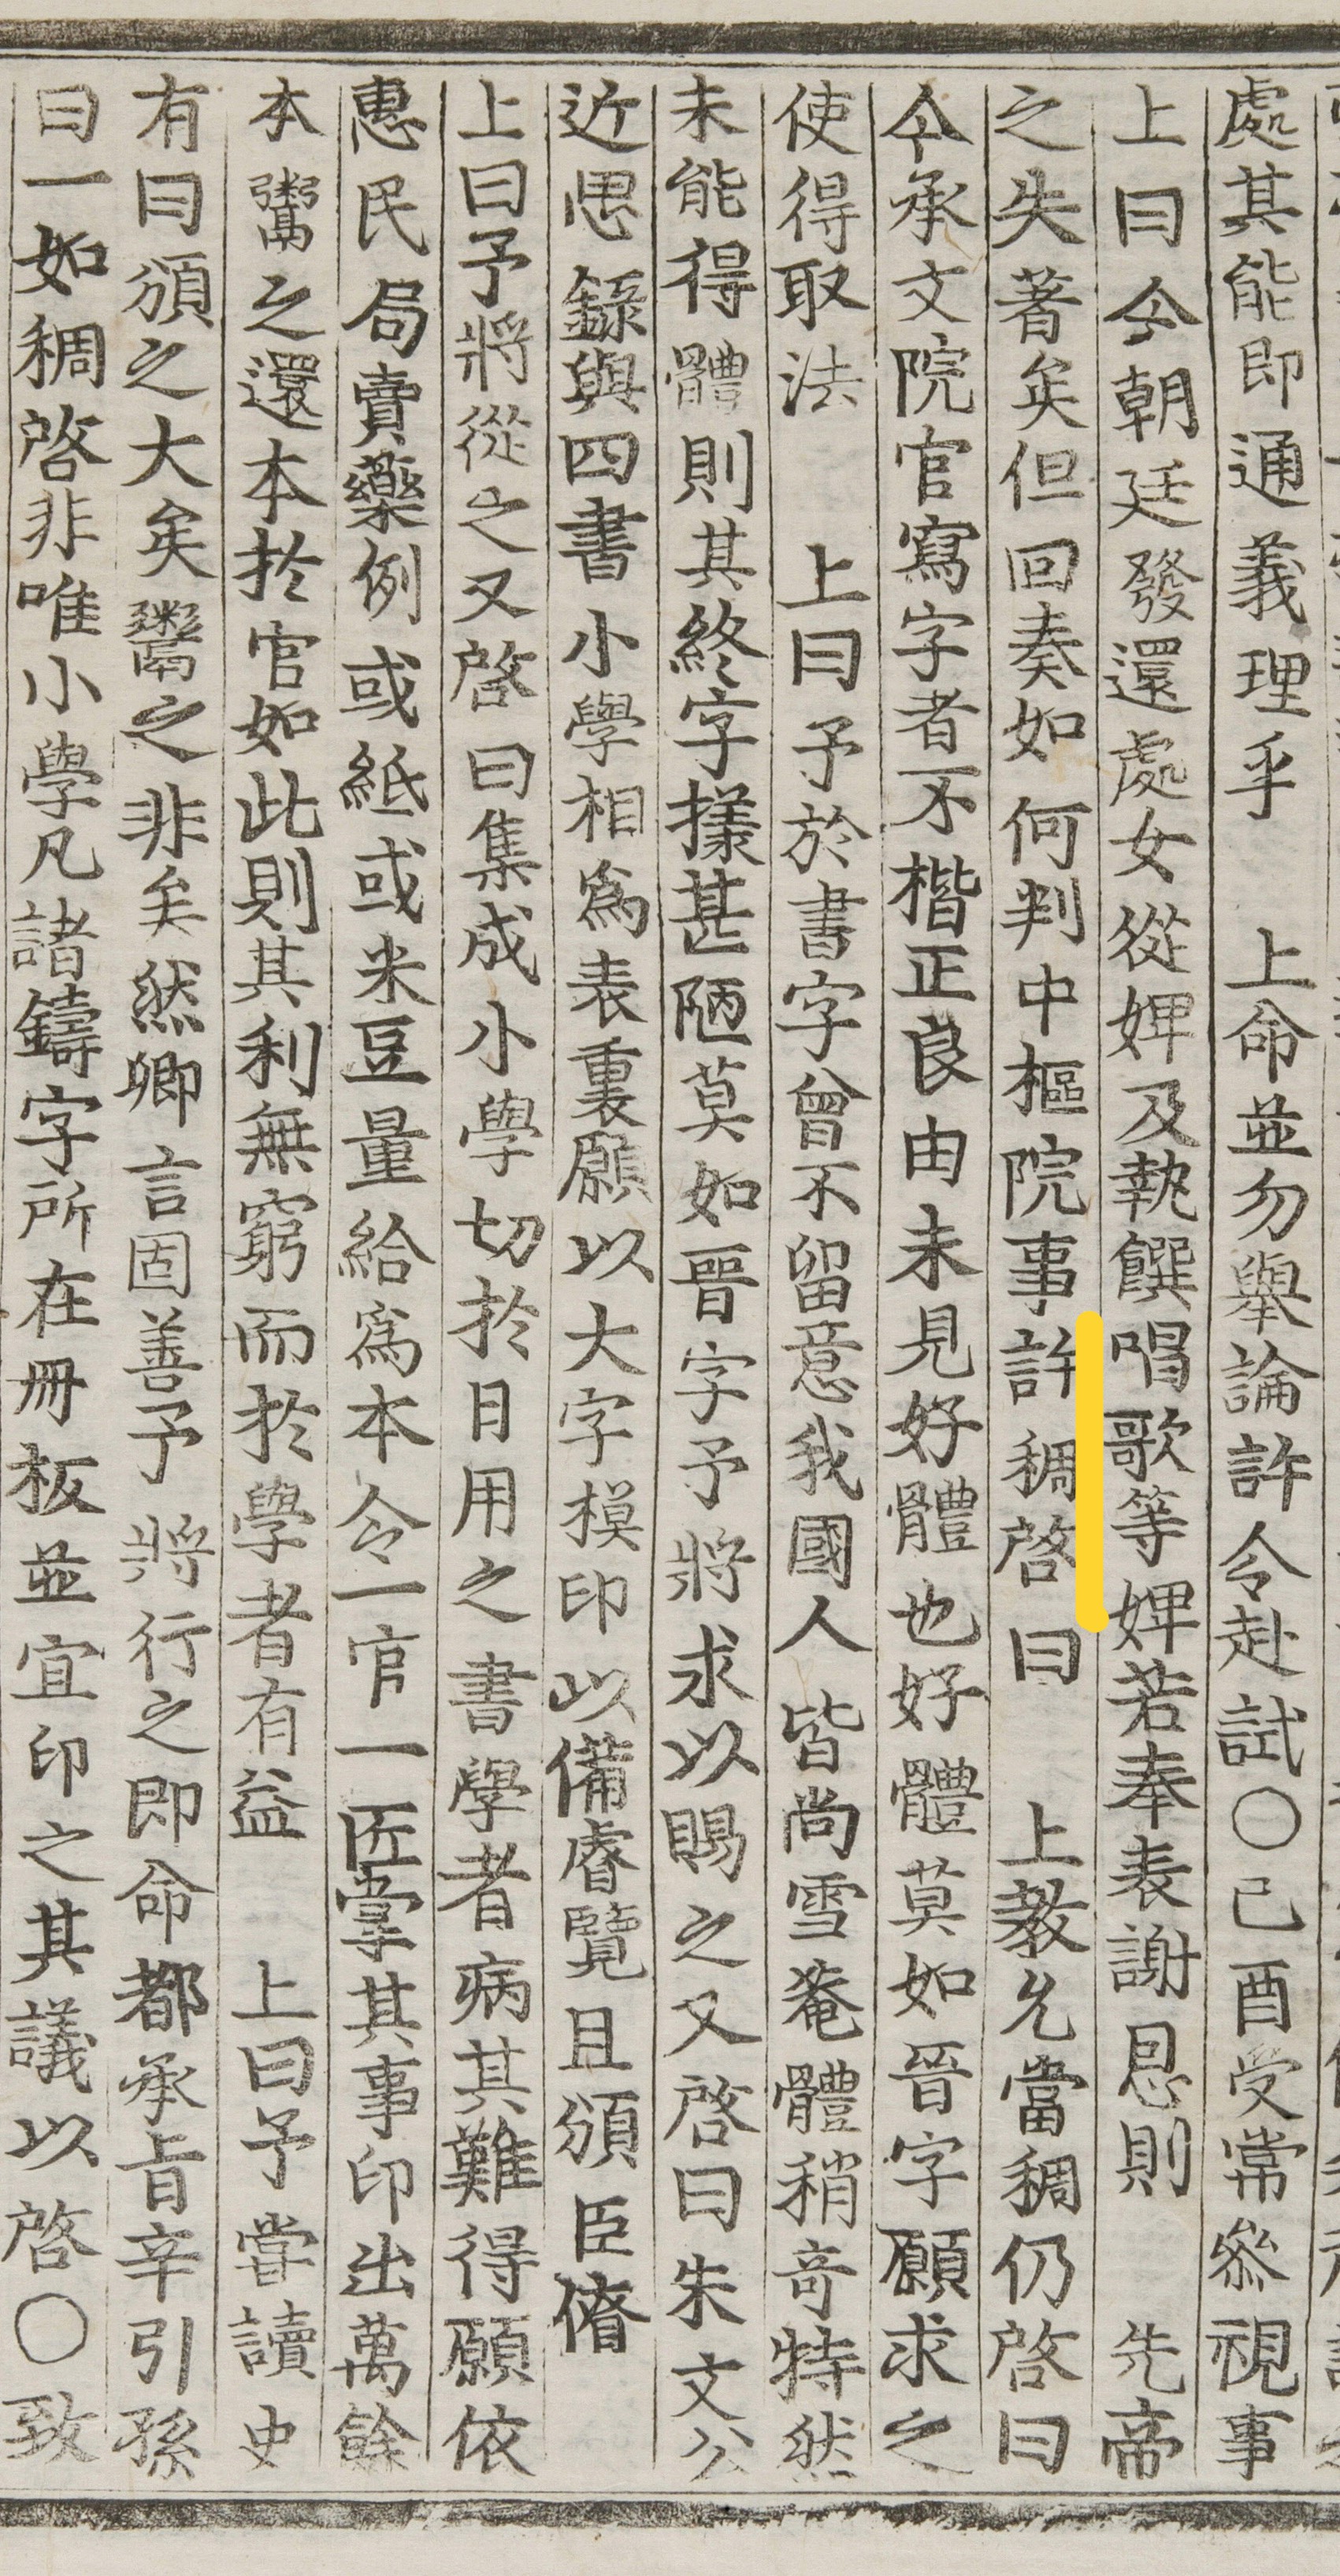 處其能即通義理乎 上命並勿舉論許令赴試〇己酉受常參視事
上曰今朝廷發還處女從婢及執饌唱歌等婢若奉表謝恩則 先帝
之失著矣但回奏如何判中樞院事許稠啓曰 上敎允當稠仍啓曰
今承文院官寫字者不楷正良由未見好體也好體莫如晉字願求之
使得取法 上曰予於書字曾不留意我國人皆尙雪菴體稍奇特然
未能得體則其終字㨾甚陋莫如晉字予將求以賜之又啓曰朱文公
近思錄與四書小學相爲表裏願以大字模印以備睿覽且頒臣僚
上曰予將從之又啓曰集成小學切於日用之書學者病其難得願依
惠民局賣藥例或紙或米豆量給爲本令一官一匠掌其事印出萬餘
本鬻之還本於官如此則其利無窮而於學者有益 上曰予嘗讀史
有曰頒之大矣鬻之非矣然卿言固善予將行之即命都承旨辛引孫
曰一如稠啓非唯小學凡諸鑄字所在冊板並宜印之其議以啓〇致